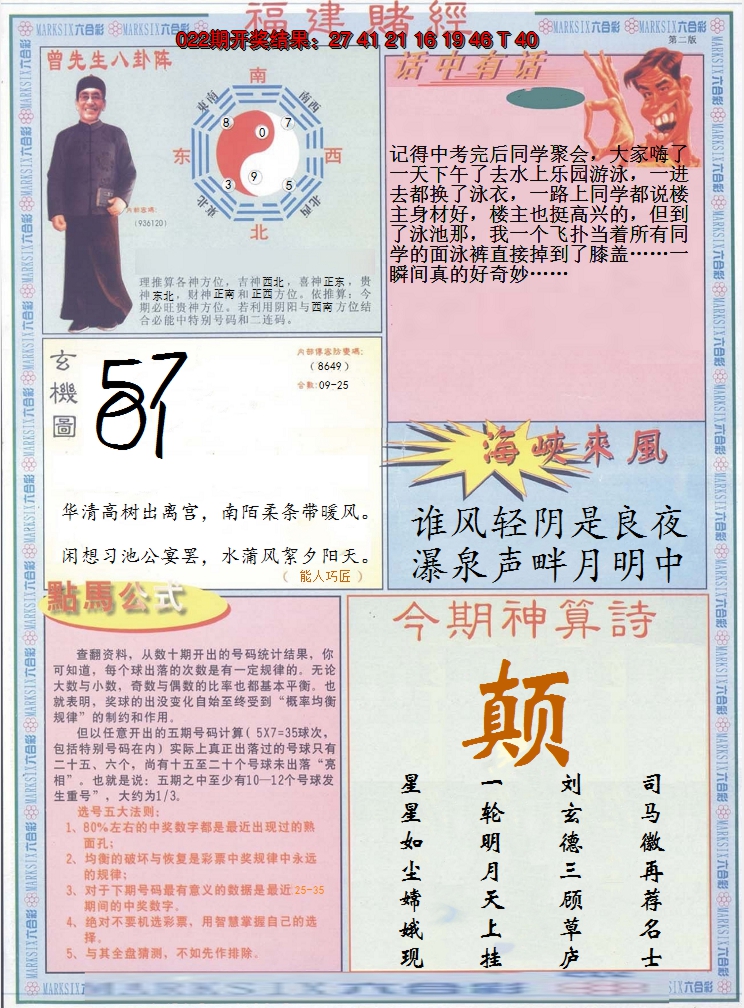 福建賭經
022期开奖结果：27 41 21 16 19 46 T 40
MARKSIX六合彩
第二版
曾先生八卦阵
南
东南
西南
8
0
7
东
西
3
9
5
东北
西北
北
内部密碼：
（936120）
理推算各神方位，吉神西北，喜神正东，贵
神东北，财神正南和正西方位。依推算：今
期必旺贵神方位。若利用阴阳与西南方位结
合必能中特别号码和二连码。
话中有话
记得中考完后同学聚会，大家嗨了
一天下午了去水上乐园游泳，一进
去都换了泳衣，一路上同学都说楼
主身材好，楼主也挺高兴的，但到
了泳池那，我一个飞扑当着所有同
学的面泳裤直接掉到了膝盖……一
瞬间真的好奇妙……
玄機圖
内部傳密防變碼：
（8649）
合數：09-25
华清高树出离宫，南陌柔条带暖风。
闲想习池公宴罢，水蒲风絮夕阳天。
（ 能人巧匠 ）
海峽來風
谁风轻阴是良夜
瀑泉声畔月明中
點馬公式
查翻资料，从数十期开出的号码统计结果，你
可知道，每个球出落的次数是有一定规律的。无论
大数与小数，奇数与偶数的比率也都基本平衡。也
就表明，奖球的出没变化自始至终受到“概率均衡
规律”的制约和作用。
但以任意开出的五期号码计算（ 5X7=35球次，
包括特别号码在内）实际上真正出落过的号球只有
二十五、六个，尚有十五至二十个号球未出落“亮
相”。也就是说：五期之中至少有10—12个号球发
生重号”，大约为1/3。
选号五大法则：
1、80%左右的中奖数字都是最近出现过的熟
面孔；
2、均衡的破坏与恢复是彩票中奖规律中永远
的规律；
3、对于下期号码最有意义的数据是最近25-35
期间的中奖数字。
4、绝对不要机选彩票，用智慧掌握自己的选
择。
5、与其全盘猜测，不如先作排除。
今期神算詩
颠
司马徽再荐名士
刘玄德三顾草庐
一轮明月天上挂
星星如尘嫦娥现